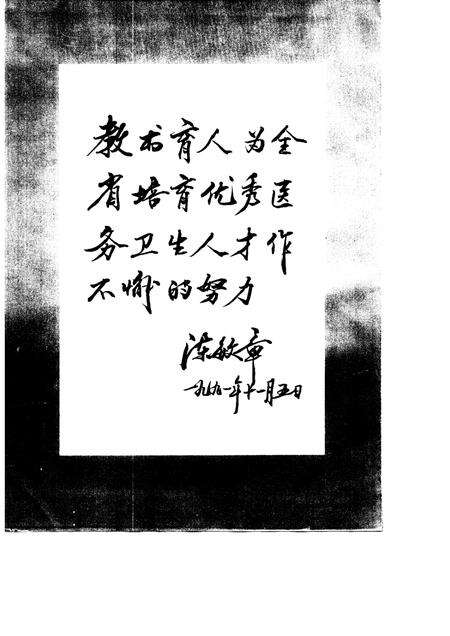 教书育人为全
省培育优秀医
务卫生人才作
不懈的努力
陈敏章
一九九一年十一月五日